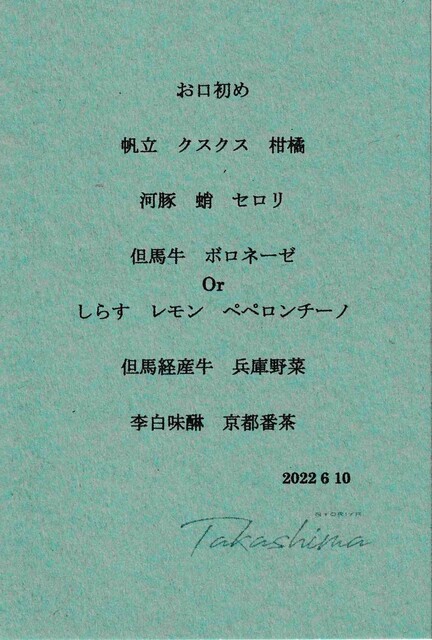 お口初め
帆立　クスクス　柑橘
河豚　蛸　セロリ
但馬牛　ボロネーゼ
Or
しらす　レモン　ペペロンチーノ
但馬経産牛　兵庫野菜
李白味醂　京都番茶
2022 6 10
Takashima